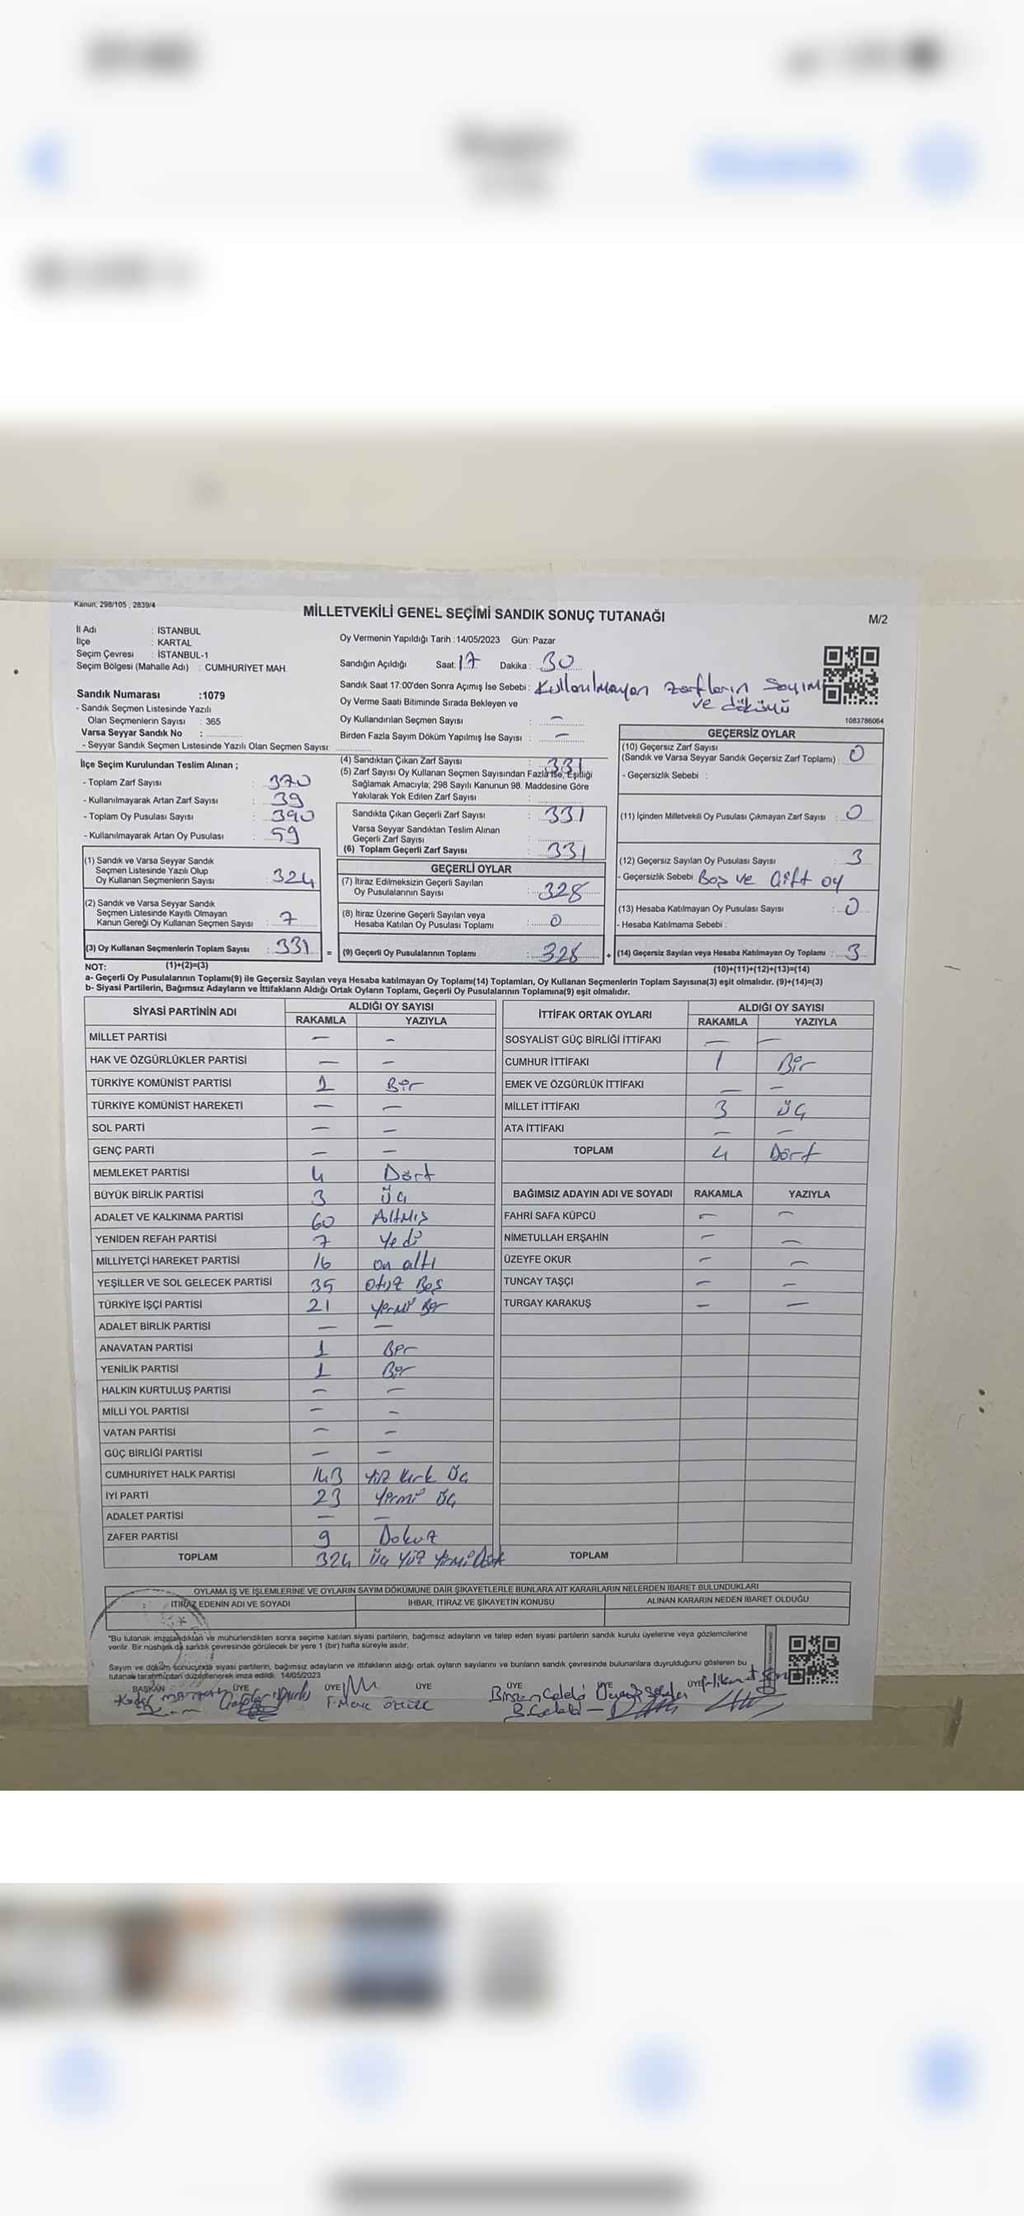 Kanun: 298/105 , 2839/4
MİLLETVEKİLİ GENEL SEÇİMİ SANDIK SONUÇ TUTANAĞI
M/2
İl Adı : İSTANBUL
İlçe : KARTAL
Seçim Çevresi : İSTANBUL-1
Seçim Bölgesi (Mahalle Adı) : CUMHURİYET MAH.
Oy Vermenin Yapıldığı Tarih :14/05/2023 Gün: Pazar
Sandığın Açıldığı Saat: 17 Dakika : 30
Sandık Saat 17:00'den Sonra Açımış İse Sebebi : Kullanılmayan zarfların sayım
ve dökümü
Oy Verme Saati Bitiminde Sırada Bekleyen ve
Oy Kullandırılan Seçmen Sayısı : -
Birden Fazla Sayım Döküm Yapılmış İse Sayısı : -
1083786064
Sandık Numarası :1079
- Sandık Seçmen Listesinde Yazılı
Olan Seçmenlerin Sayısı : 365
Varsa Seyyar Sandık No :
- Seyyar Sandık Seçmen Listesinde Yazılı Olan Seçmen Sayısı:
İlçe Seçim Kurulundan Teslim Alınan ;
- Toplam Zarf Sayısı : 370
- Kullanılmayarak Artan Zarf Sayısı : 39
- Toplam Oy Pusulası Sayısı : 390
- Kullanılmayarak Artan Oy Pusulası : 59
(1) Sandık ve Varsa Seyyar Sandık
Seçmen Listesinde Yazılı Olup
Oy Kullanan Seçmenlerin Sayısı : 324
(2) Sandık ve Varsa Seyyar Sandık
Seçmen Listesinde Kayıtlı Olmayan
Kanun Gereği Oy Kullanan Seçmen Sayısı : 7
(3) Oy Kullanan Seçmenlerin Toplam Sayısı : 331
(1)+(2)=(3)
(4) Sandıktan Çıkan Zarf Sayısı : 331
(5) Zarf Sayısı Oy Kullanan Seçmen Sayısından Fazla İse, Eşitliği
Sağlamak Amacıyla; 298 Sayılı Kanunun 98. Maddesine Göre
Yakılarak Yok Edilen Zarf Sayısı :
Sandıkta Çıkan Geçerli Zarf Sayısı : 331
Varsa Seyyar Sandıktan Teslim Alınan
Geçerli Zarf Sayısı :
(6) Toplam Geçerli Zarf Sayısı : 331
GEÇERLİ OYLAR
(7) İtiraz Edilmeksizin Geçerli Sayılan
Oy Pusulalarının Sayısı : 328
(8) İtiraz Üzerine Geçerli Sayılan veya
Hesaba Katılan Oy Pusulası Toplamı : 0
= (9) Geçerli Oy Pusulalarının Toplamı : 328
GEÇERSİZ OYLAR
(10) Geçersiz Zarf Sayısı
(Sandık ve Varsa Seyyar Sandık Geçersiz Zarf Toplamı) : 0
- Geçersizlik Sebebi :
(11) İçinden Milletvekili Oy Pusulası Çıkmayan Zarf Sayısı : 0
(12) Geçersiz Sayılan Oy Pusulası Sayısı : 3
- Geçersizlik Sebebi : Boş ve Çift oy
(13) Hesaba Katılmayan Oy Pusulası Sayısı : 0
- Hesaba Katılmama Sebebi :
+ (14) Geçersiz Sayılan veya Hesaba Katılmayan Oy Toplamı : 3
(10)+(11)+(12)+(13)=(14)
NOT:
a- Geçerli Oy Pusulalarının Toplamı(9) ile Geçersiz Sayılan veya Hesaba katılmayan Oy Toplamı(14) Toplamları, Oy Kullanan Seçmenlerin Toplam Sayısına(3) eşit olmalıdır. (9)+(14)=(3)
b- Siyasi Partilerin, Bağımsız Adayların ve İttifakların Aldığı Ortak Oyların Toplamı, Geçerli Oy Pusulalarının Toplamına(9) eşit olmalıdır.
SİYASİ PARTİNİN ADI ALDIĞI OY SAYISI
RAKAMLA YAZIYLA
MİLLET PARTİSİ - -
HAK VE ÖZGÜRLÜKLER PARTİSİ - -
TÜRKİYE KOMÜNİST PARTİSİ 1 Bir
TÜRKİYE KOMÜNİST HAREKETİ - -
SOL PARTİ - -
GENÇ PARTİ - -
MEMLEKET PARTİSİ 4 Dört
BÜYÜK BİRLİK PARTİSİ 3 üç
ADALET VE KALKINMA PARTİSİ 60 Altmış
YENİDEN REFAH PARTİSİ 7 Yedi
MİLLİYETÇİ HAREKET PARTİSİ 16 on altı
YEŞİLLER VE SOL GELECEK PARTİSİ 35 otuz Beş
TÜRKİYE İŞÇİ PARTİSİ 21 Yirmi Bir
ADALET BİRLİK PARTİSİ - -
ANAVATAN PARTİSİ 1 Bir
YENİLİK PARTİSİ 1 Bir
HALKIN KURTULUŞ PARTİSİ - -
MİLLİ YOL PARTİSİ - -
VATAN PARTİSİ - -
GÜÇ BİRLİĞİ PARTİSİ - -
CUMHURİYET HALK PARTİSİ 143 Yüz Kırk Üç
İYİ PARTİ 23 Yirmi Üç
ADALET PARTİSİ - -
ZAFER PARTİSİ 9 Dokuz
TOPLAM 324 Üç Yüz Yirmi Dört
İTTİFAK ORTAK OYLARI ALDIĞI OY SAYISI
RAKAMLA YAZIYLA
SOSYALİST GÜÇ BİRLİĞİ İTTİFAKI - -
CUMHUR İTTİFAKI 1 Bir
EMEK VE ÖZGÜRLÜK İTTİFAKI - -
MİLLET İTTİFAKI 3 üç
ATA İTTİFAKI - -
TOPLAM 4 Dört
BAĞIMSIZ ADAYIN ADI VE SOYADI RAKAMLA YAZIYLA
FAHRİ SAFA KÜPCÜ - -
NİMETULLAH ERŞAHİN - -
ÜZEYFE OKUR - -
TUNCAY TAŞÇI - -
TURGAY KARAKUŞ - -
TOPLAM
OYLAMA İŞ VE İŞLEMLERİNE VE OYLARIN SAYIM DÖKÜMÜNE DAİR ŞİKAYETLERLE BUNLARA AİT KARARLARIN NELERDEN İBARET BULUNDUKLARI
İTİRAZ EDENİN ADI VE SOYADI İHBAR, İTİRAZ VE ŞİKAYETİN KONUSU ALINAN KARARIN NEDEN İBARET OLDUĞU
*Bu tutanak imzalandıktan ve mühürlendikten sonra seçime katılan siyasi partilerin, bağımsız adayların ve talep eden siyasi partilerin sandık kurulu üyelerine veya gözlemcilerine
verilir. Bir nüshası da sandık çevresinde görülecek bir yere 1 (bir) hafta süreyle asılır.
Sayım ve döküm sonucunda siyasi partilerin, bağımsız adayların ve ittifakların aldığı ortak oyların sayılarını ve bunların sandık çevresinde bulunanlara duyrulduğunu gösteren bu
tutanak tarafımızdan düzenlenerek imza edildi. 14/05/2023
BAŞKAN ÜYE ÜYE ÜYE ÜYE ÜYE ÜYE